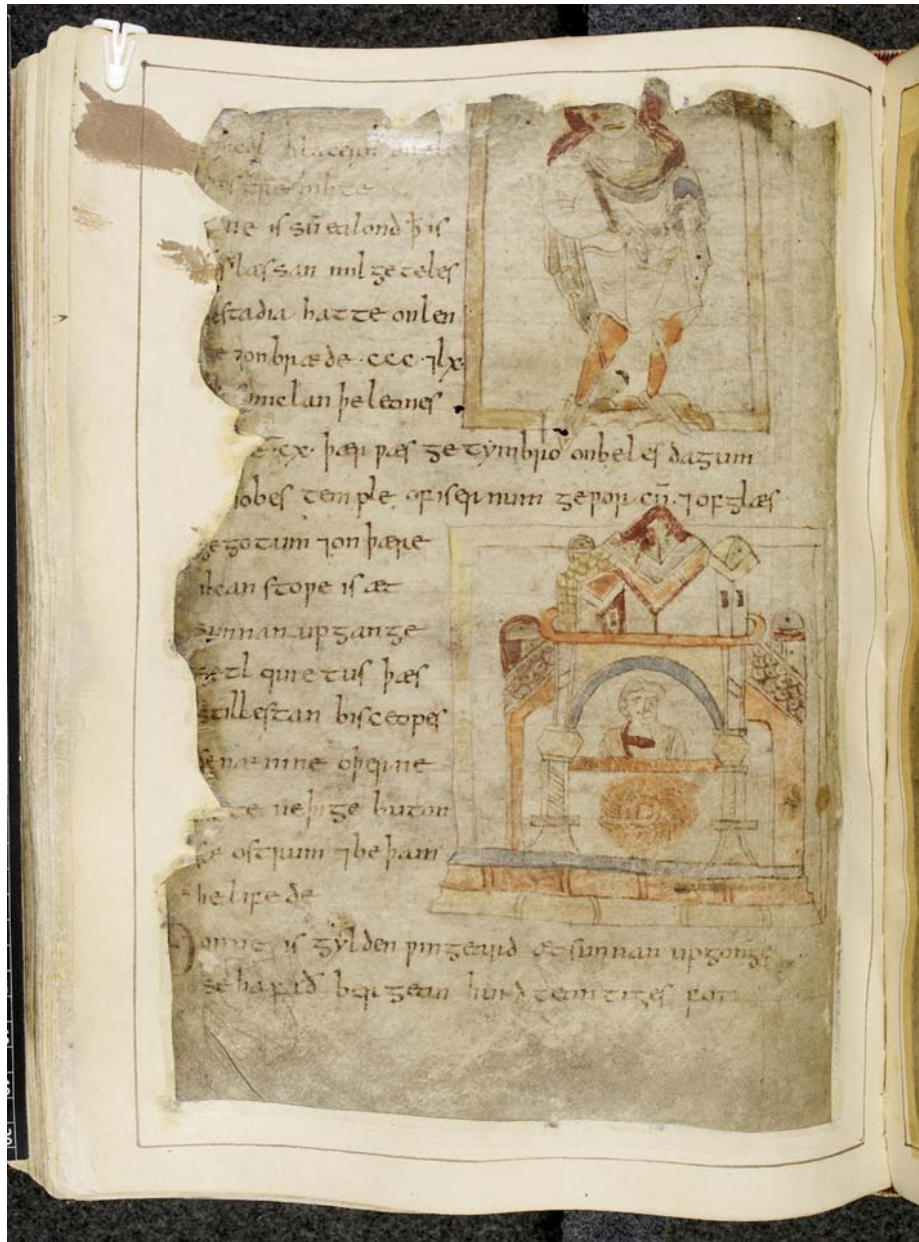 blacern onæle
nihte
ne is sū ealond ꝥ is
læssan mil geteles
stadia hatte onlen
ge ⁊onbræde·ccc·⁊lx·
miclan þeleones
·cx· þær ƿæs getymbrio onbeles dagum
iobes temple ofisernum geƿorcū·⁊ofglæs
gegotum ⁊on þære
ilcan stoƿe is æt
sunnan upgange
setl quietus þæs
stillestan bisceopes
se nænine oþerne
buton
sæ ostrum ⁊be þam
he lifede
Ðonne is gylden ƿingeard æt sunnan upgonge
se hafað bergean hund teontiges fot